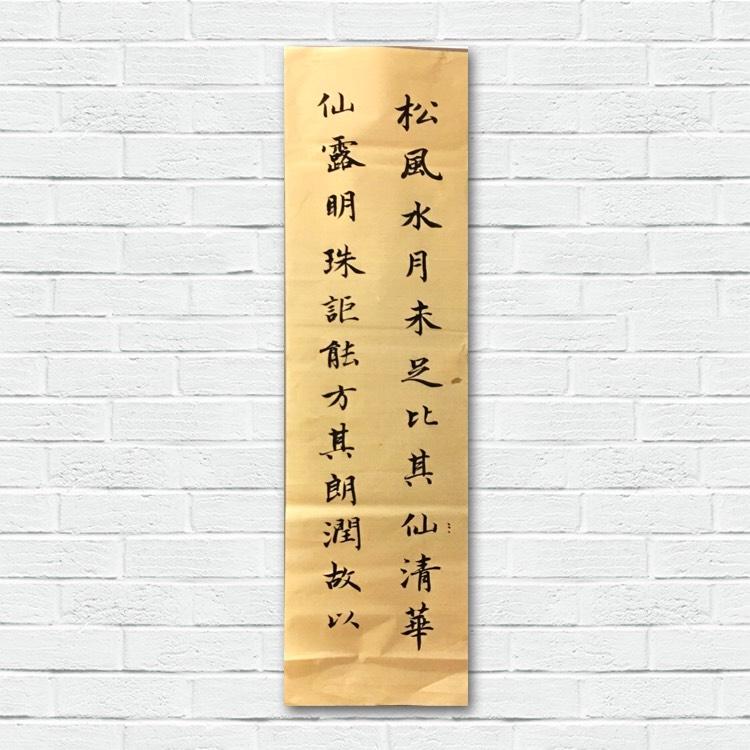 松風水月未足比其仙清華
仙露明珠詎能方其朗潤故以